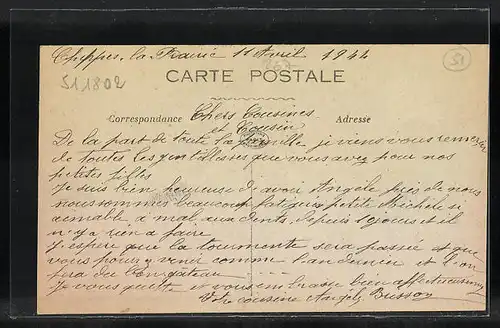 Cheppes, la Prairie 11 Avril 1944
867
51
511802
CARTE POSTALE
Correspondance
Adresse
Chers Cousines
et Cousin
De la part de toute la famille je viens vous remercier
de toutes les gentillesses que vous avez pour nos
petites filles
Je suis bien heureuse d'avoir Angèle près de nous
nous sommes beaucoup petite Michèle si
aimable a mal aux dents depuis 10 jours et il
n'y a rien a faire
J'espère que la tourmente sera passée et que
vous pourrez venir comme l'an dernier et l'on
fera du bon gâteau
Je vous quitte et vous embrasse bien affectueusement
Votre cousine Busson